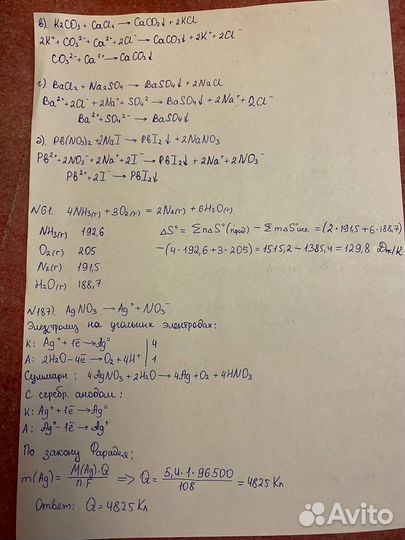 в) K2CO3 + CaCl2 → CaCO3↓ + 2KCl
2K⁺ + CO3²⁻ + Ca²⁺ + 2Cl⁻ → CaCO3↓ + 2K⁺ + 2Cl⁻
CO3²⁻ + Ca²⁺ → CaCO3↓
г) BaCl2 + Na2SO4 → BaSO4↓ + 2NaCl
Ba²⁺ + 2Cl⁻ + 2Na⁺ + SO4²⁻ → BaSO4↓ + 2Na⁺ + 2Cl⁻
Ba²⁺ + SO4²⁻ → BaSO4↓
д) Pb(NO3)2 + 2NaI → PbI2↓ + 2NaNO3
Pb²⁺ + 2NO3⁻ + 2Na⁺ + 2I⁻ → PbI2↓ + 2Na⁺ + 2NO3⁻
Pb²⁺ + 2I⁻ → PbI2↓
N61. 4NH3(г) + 3O2(г) = 2N2(г) + 6H2O(г)
NH3(г) 192,6 ΔS° = ΣnΔS°(прод) − ΣmΔS°исх. = (2·191,5 + 6·188,7)
O2(г) 205 −(4·192,6 + 3·205) = 1515,2 − 1385,4 = 129,8 Дж/К
N2(г) 191,5
H2O(г) 188,7
N187. AgNO3 → Ag⁺ + NO3⁻
Электролиз на угольных электродах:
К: Ag⁺ + 1ē → Ag° | 4
А: 2H2O − 4ē → O2 + 4H⁺ | 1
Суммарн: 4AgNO3 + 2H2O → 4Ag + O2 + 4HNO3
С серебр. анодом:
К: Ag⁺ + 1ē → Ag°
А: Ag° − 1ē → Ag⁺
По закону Фарадея:
m(Ag) = M(Ag)·Q / n·F => Q = 5,4·1·96500 / 108 = 4825 Кл
Ответ: Q = 4825 Кл
Avito